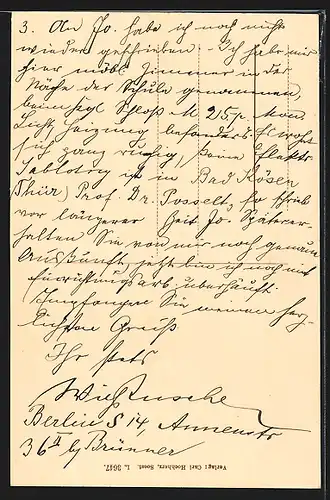 3. An Jo. habe ich noch nicht
wieder geschrieben. Ich habe mir
hier möbl. Zimmer in der
Nähe der Schule genommen,
M 25. p. Mon.
Licht, Heizung besonders. Es wohnt
sich ganz ruhig,
ist in Bad Kösen
(Thür) Prof. Dr. Posselt, so schrieb
vor längerer Zeit Jo. Später er-
halten Sie von mir noch genaue
Auskunft, jetzt bin ich noch mit
Einrichtungsarb. überhäuft.
Empfangen Sie meinen herz-
lichsten Gruß
Ihr stets
Berlin S 14, Annenstr
36 II b/ Brünner
Verlag: Carl Hochherz, Soest. L. 3647.